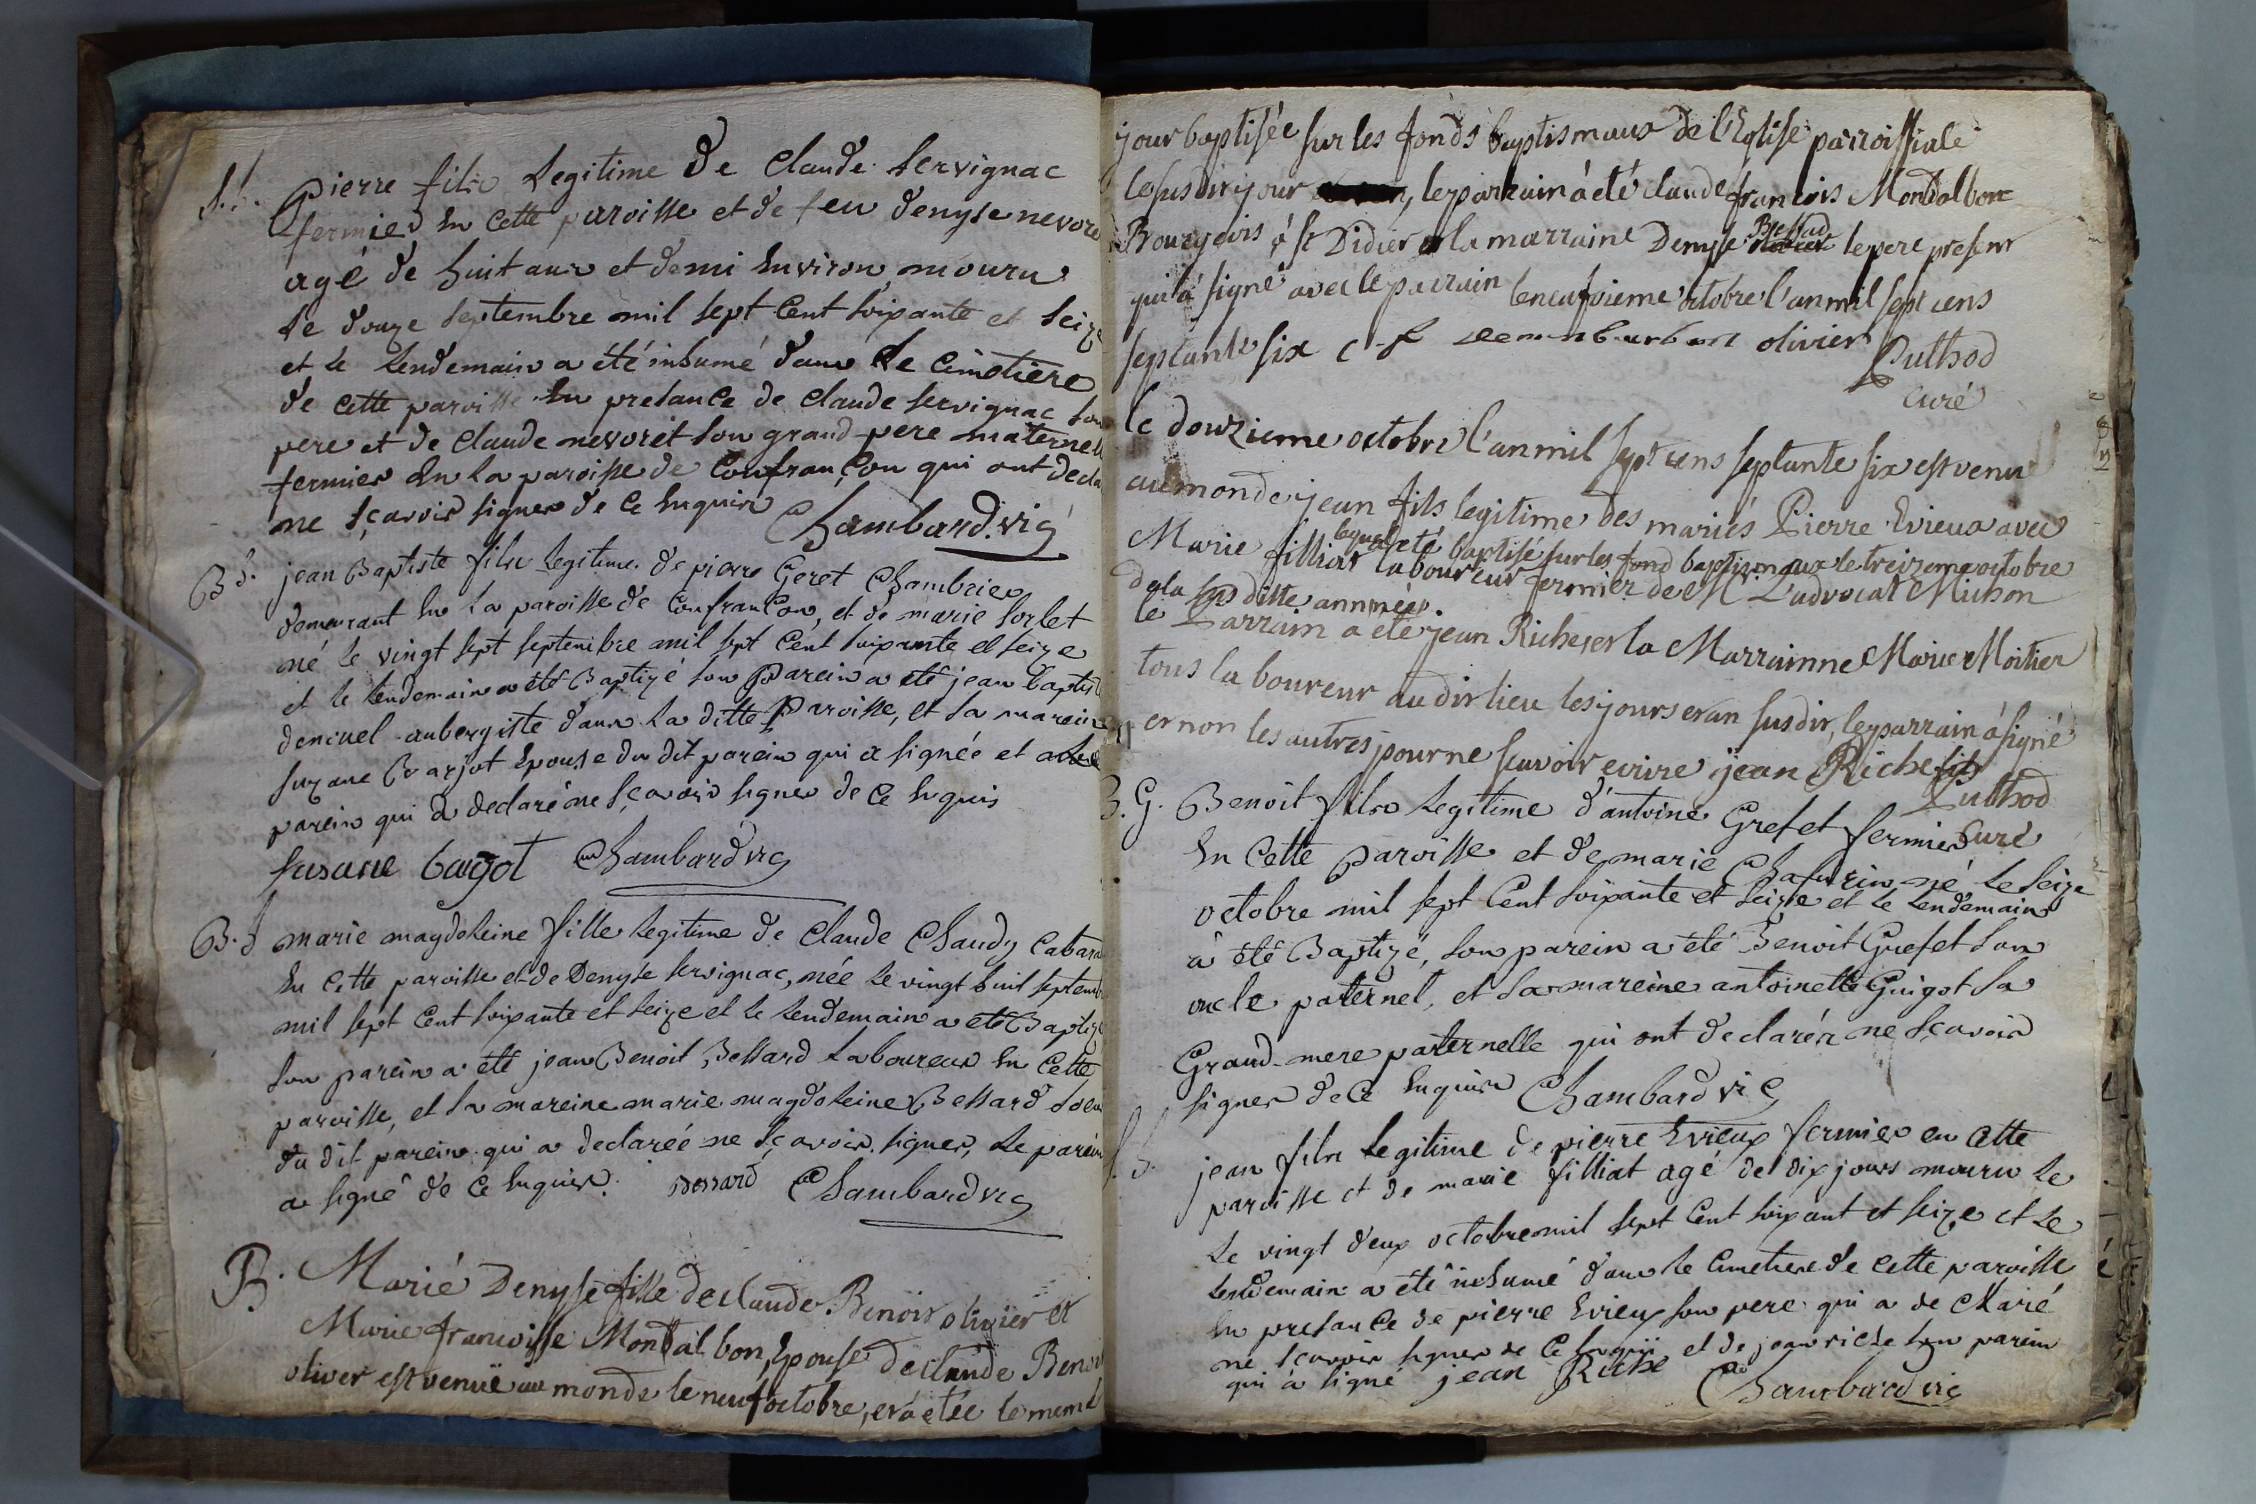 S.S. pierre fils Legitime de Claude Servignac
fermier en cette paroisse et de feu denyse nevore
agé de huit ans et demi Environ mouru
Le douze septembre mil sept Cent soixante et seize
et le Lendemain a été inhumé dans Le cimetiere
de cette paroisse En presance de Claude servignac son
pere et de Claude nevoret son grand-pere maternell
fermier En La paroisse de Confrançon qui ont decla
ne sçavoir signer de Ce Enquis Chambard. vic
B d. jean Baptiste fils Legitime de pierre Geret Chambrier
demeurant En La paroisse de Confrancon, et de marie sorlet
né le vingt sept septembre mil sept Cent soixante et seize
et le Lendemain a été Baptizé son parein a été jean baptiste
denivel aubergiste dans La ditte Paroisse, et sa mareine
suzane Barjot Epouse du dit parein qui a signée et
parein qui a declaré ne sçavoir signer de Ce Enquis
susane bagot Chambard vic
B. marie magdeleine fille Legitime de Claude Chaudy Cabara
En Cette paroisse et de Denyse servignac, née Le vingt huit septemb
mil sept Cent soixante et seize et le Lendemain a été Baptizé
son parein a été jean Benoit Bessard Laboureur En Cette
paroisse, et sa mareine marie magdeleine Bessard soeur
du dit parein qui a declarée ne sçavoir signer, Le parein
a signé de Ce Enquis. Bessard Chambard vic
B. Marie Denyse fille de claude Benoit olivier et
Marie francoisse Montalbon, Epouse de claude Benoi
oliver est venuë au monde le neuf octobre, et a etée le meme
jour baptisée sur les fonds baptismaux de l'Eglise parroissiale
lesusdit jour, le parrain à été claude francois Montalbon
Bourgeois à St Didier et la marraine Denyse Bessad le pere present
qui à signé avec le parrain le neufvieme octobre l'an mil sept cens
septante six c f olivier Puthod
curé
le douzieme octobre l'an mil sept cens septante six est venu
au monde jean fils legitime des mariés Pierre Evieux avec
lequel a été baptisé sur les fond baptismaux le treizeme octobre
Marie filliat laboureur fermier de Mr. L'advocat Michon
de la sus ditte anneé.
le Parrain a été jean Riche et la Marrainne Marie Moitier
tous laboureur au dit lieu les jours et an susdit, le parrain à signé
et non les autres pour ne scavoir ecrire jean Riche
Puthod
Curé
B. G. Benoit fils Legitime d'antoine Grefet fermier
En Cette paroisse et de marie Chavrin né Le seize
octobre mil sept Cent soixante et seize et le Lendemain
à été Baptizé, son parein a été Benoit Grefet son
oncle paternel, et sa mareine antoinette Guigot sa
Grand-mere paternelle qui ont declaréz ne sçavoir
signer de Ce Enquis Chambard vic
jean fils Legitime de pierre Evieux fermier en cette
paroisse et de marie filliat agé de dix jours mouru Le
Le vingt deux octobre mil sept Cent soixant et seize et Le
Lendemain a été inhumé dans le Cimetiere de cette paroisse
En presance de pierre Evieux son pere qui a de Claré
ne sçavoir signer de Ce Enquis, et de jean riche son parein
qui à signé jean Riche Chambard vic